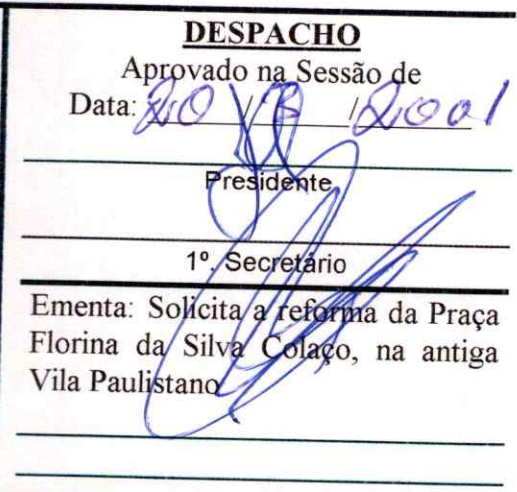 DESPACHO
Aprovado na Sessão de
Data: 20 / / 2001
Presidente
1º. Secretário
Ementa: Solicita a reforma da Praça
Florina da Silva Colaço, na antiga
Vila Paulistano